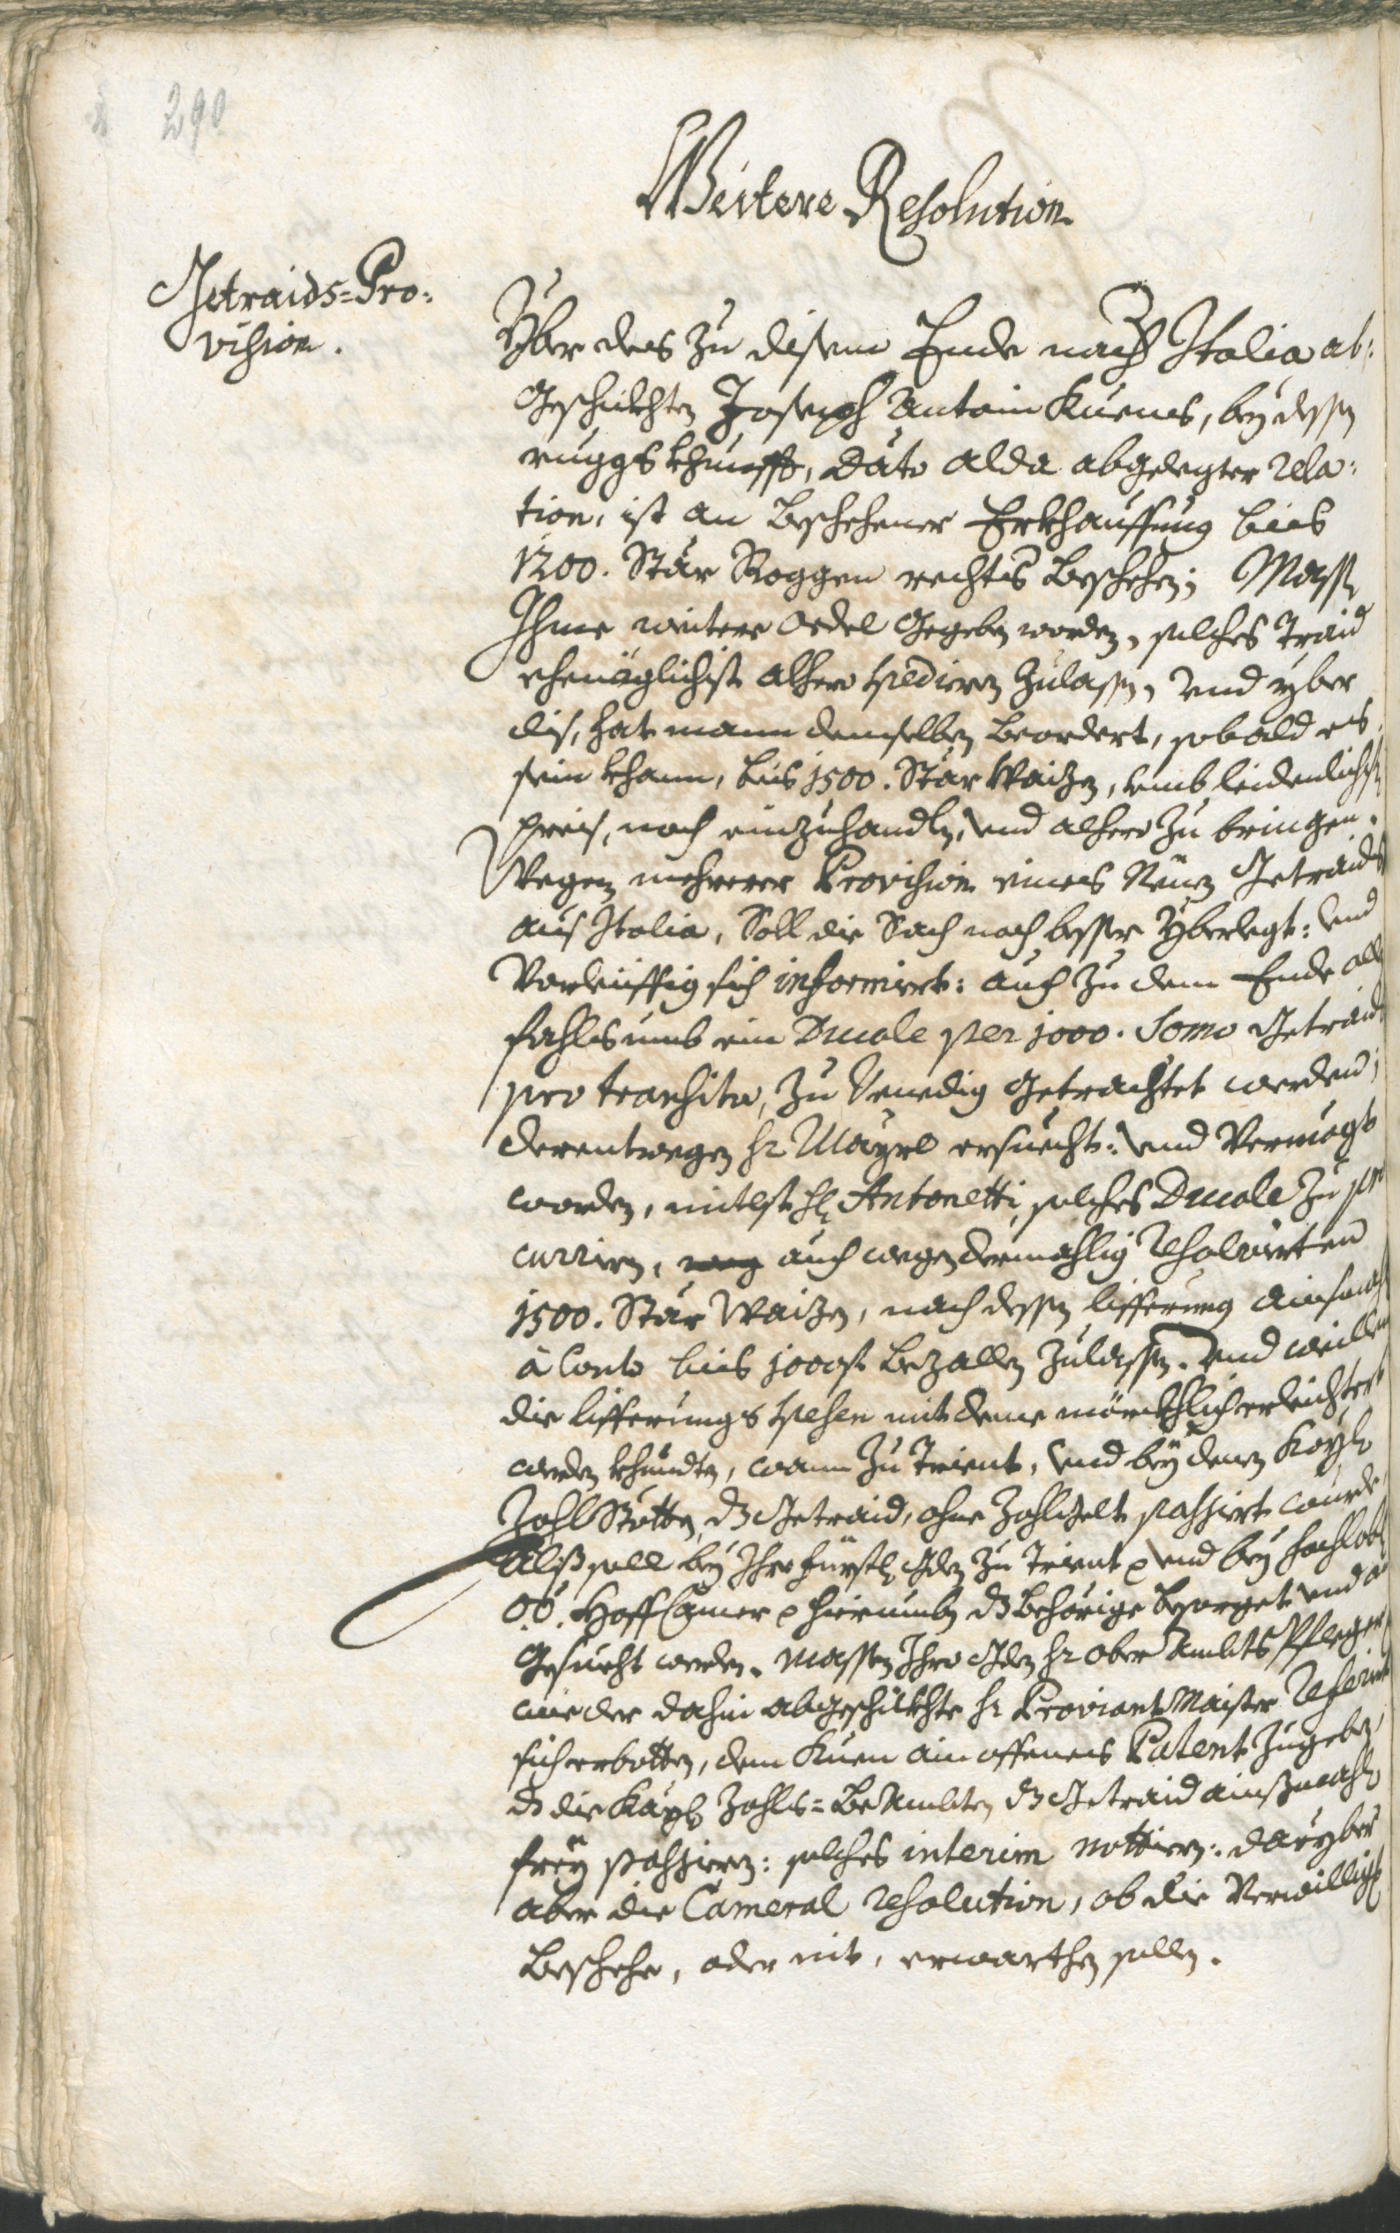 290
Weitere Resolution
Getraids=Pro:
vision.
Yber des zu disem Ende nach Italia ab:
geschickhten Joseph Antoni Kuens, bey dessen
ruggkhunfft, dato alda abgelegter rela:
tion, ist an beschehener Erkhauffung biß
1200. Stär Roggen rechts beschehen; Massen
Ihme weitere ordel gegeben worden, solches Traid
ehemöglichist alhero spedieren zulassen, und yber
diß, hat mann demselben beordert, sobald es
sein khann, biß 1500. Stär Waizen, umb leidenlichisten
preiß, noch einzuhandlen, und alhero zu bringen.
Wegen mehrerer Provision eines Neuen Getraids
aus Italia, soll die Sach noch besser yberlegt: und
vorleiffig sich informiert: auch zu dem Ende alle
fahls umb ein Ducale per 1000. Some Getraid
pro transito, zu Venedig getrachtet werden;
derentwegen hr Mayrl ersuecht: und vermögt
worden, mitlst hl Antonetti, solches Ducale zu pro
curriren, auch wegen dermahlig resolvirten
1500. Stär Waizen, nach dessen lifferung
à Conto biß 1000 f bezallen zulassen. Und weillen
die lifferungs spesen mit deme mörckhlich erleichtert
werden khundten, wann zu Trient, und bey denen Kayl
Zohl Stötten, dz Getraid, ohne Zohlgelt passiert wurde
Alß soll bey Ihro fürstl Gden zu Trient und bey hochlobl
OÖ. Hoff Camer hierumben dz behörige besorget und an
gesuecht werden. Massen Ihro Gden hr ober Ambts Pfleger
wie der dahin abgeschickhte hr Proviant Maister
sich erbotten, dem Kuen ain offenes Patent zugeben,
dz die Kayl Zohls=Beambten, dz Getraid ainßmahl
frey passieren: solches interim nottieren: daryber
aber die Cameral resolution, ob die Verwilligung
beschehe, oder nit, erwarthen sollen.